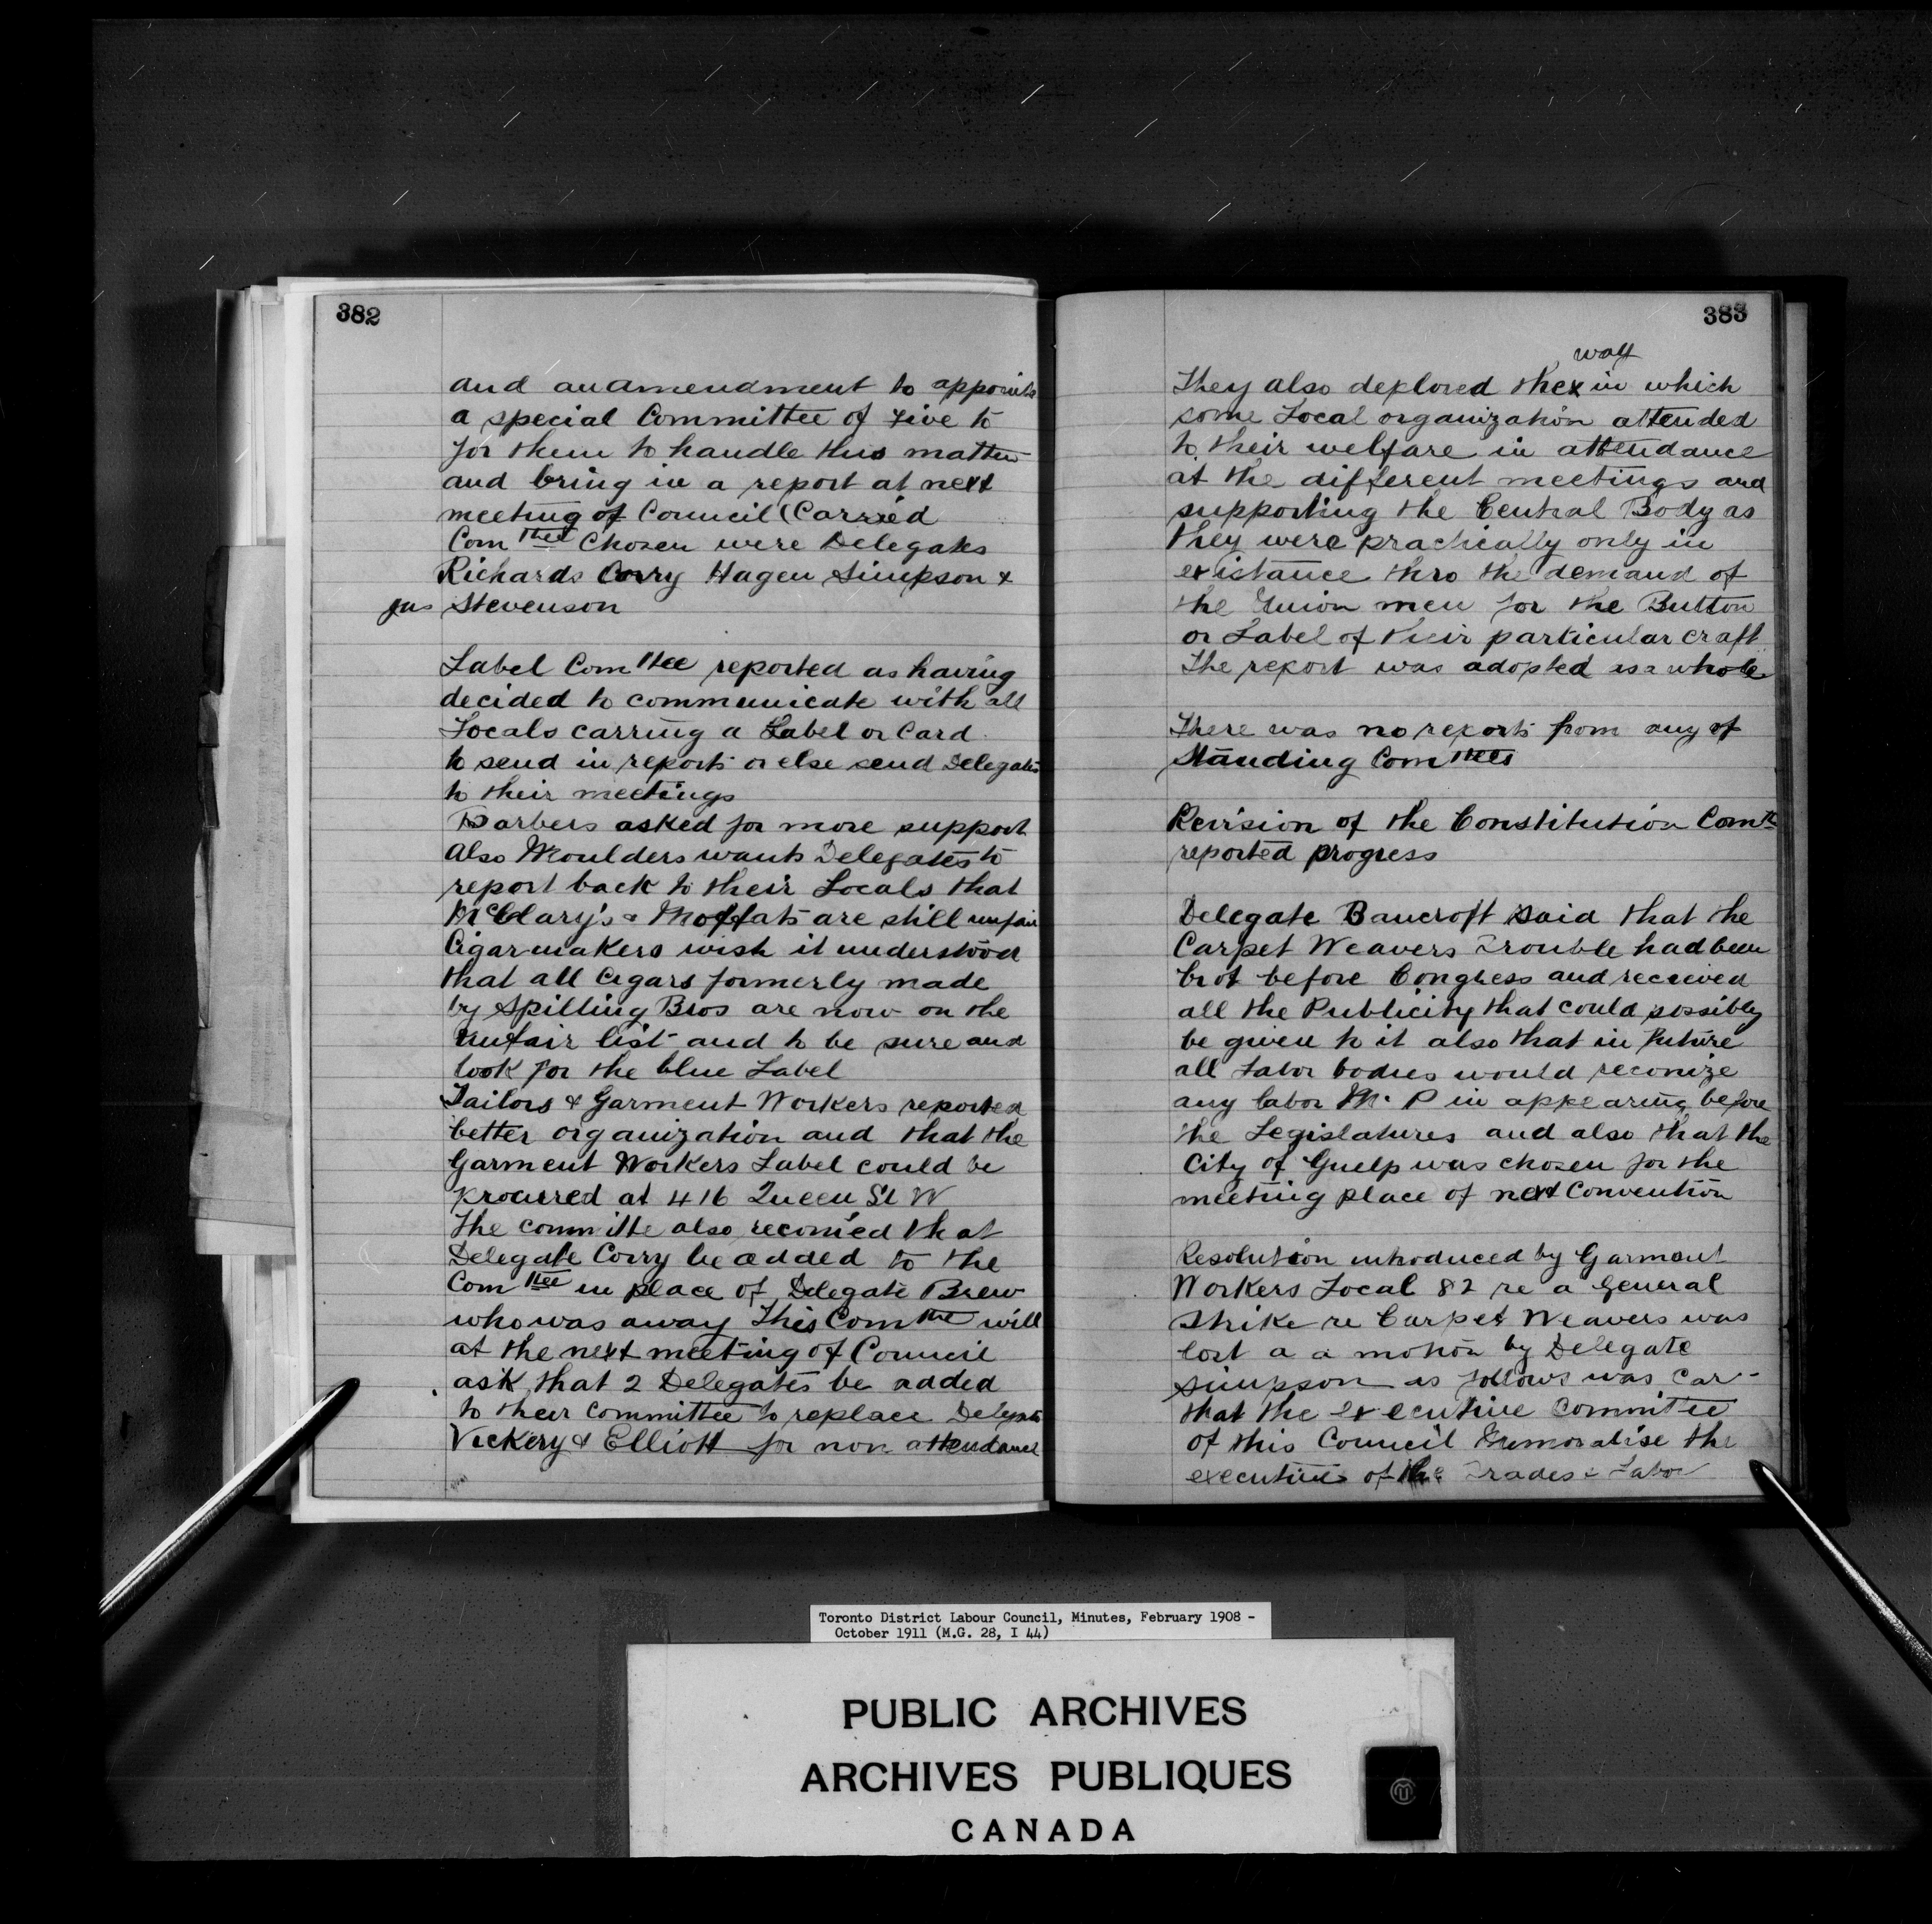 382
and an amendment to appoint
a special Committee of Five to
for them to handle this matter
and bring in a report at next
meeting of Council (Carried
Comttee Chosen were Delegates
Richards Corry Hagen Simpson &
Jas Stevenson
Label Comttee reported as having
decided to communicate with all
Locals carring a Label or Card
to send in reports or else send Delegates
to their meetings
Barbers asked for more support
Also Moulders wants Delegates to
report back to their Locals that
McClary's & Moffats are still unfair
Cigarmakers wish it understood
that all Cigars formerly made
by Spilling Bros are now on the
unfair list and to be sure and
look for the blue Label
Tailors & Garment Workers reported
better organization and that the
Garment Workers Label could be
procured at 416 Queen St W
The committe also recomed that
Delegate Corry be added to the
Comttee in place of Delegate Brew
who was away This Comttee will
at the next meeting of Council
ask that 2 Delegates be added
to their Committee to replace Delegate
Vickery & Elliott for non attendance
383
way
They also deplored the x in which
some Local organization attended
to their welfare in attendance
at the different meetings and
supporting the Central Body as
they were practically only in
existance thro the demand of
the Union men for the Button
or Label of their particular craft
The report was adopted as a whole
There was no reports from any of
Standing Comttees
Revision of the Constitution Comtt
reported progress
Delegate Bancroft said that the
Carpet Weavers Trouble had been
brot before Congress and recieved
all the Publicity that could possibly
be given to it also that in Future
all Labor bodies would reconize
any labor M. P in appearing before
the Legislatures and also that the
City of Guelp was chosen for the
meeting place of next Convention
Resolution introduced by Garment
Workers Local 82 re a General
Strike re Carpet Weavers was
lost a a motion by Delegate
Simpson as follows was Car-
that the executive Committee
of this Council Memoralise the
executive of the Trades & Labor
Toronto District Labour Council, Minutes, February 1908 -
October 1911 (M.G. 28, I 44)
PUBLIC ARCHIVES
ARCHIVES PUBLIQUES
CANADA